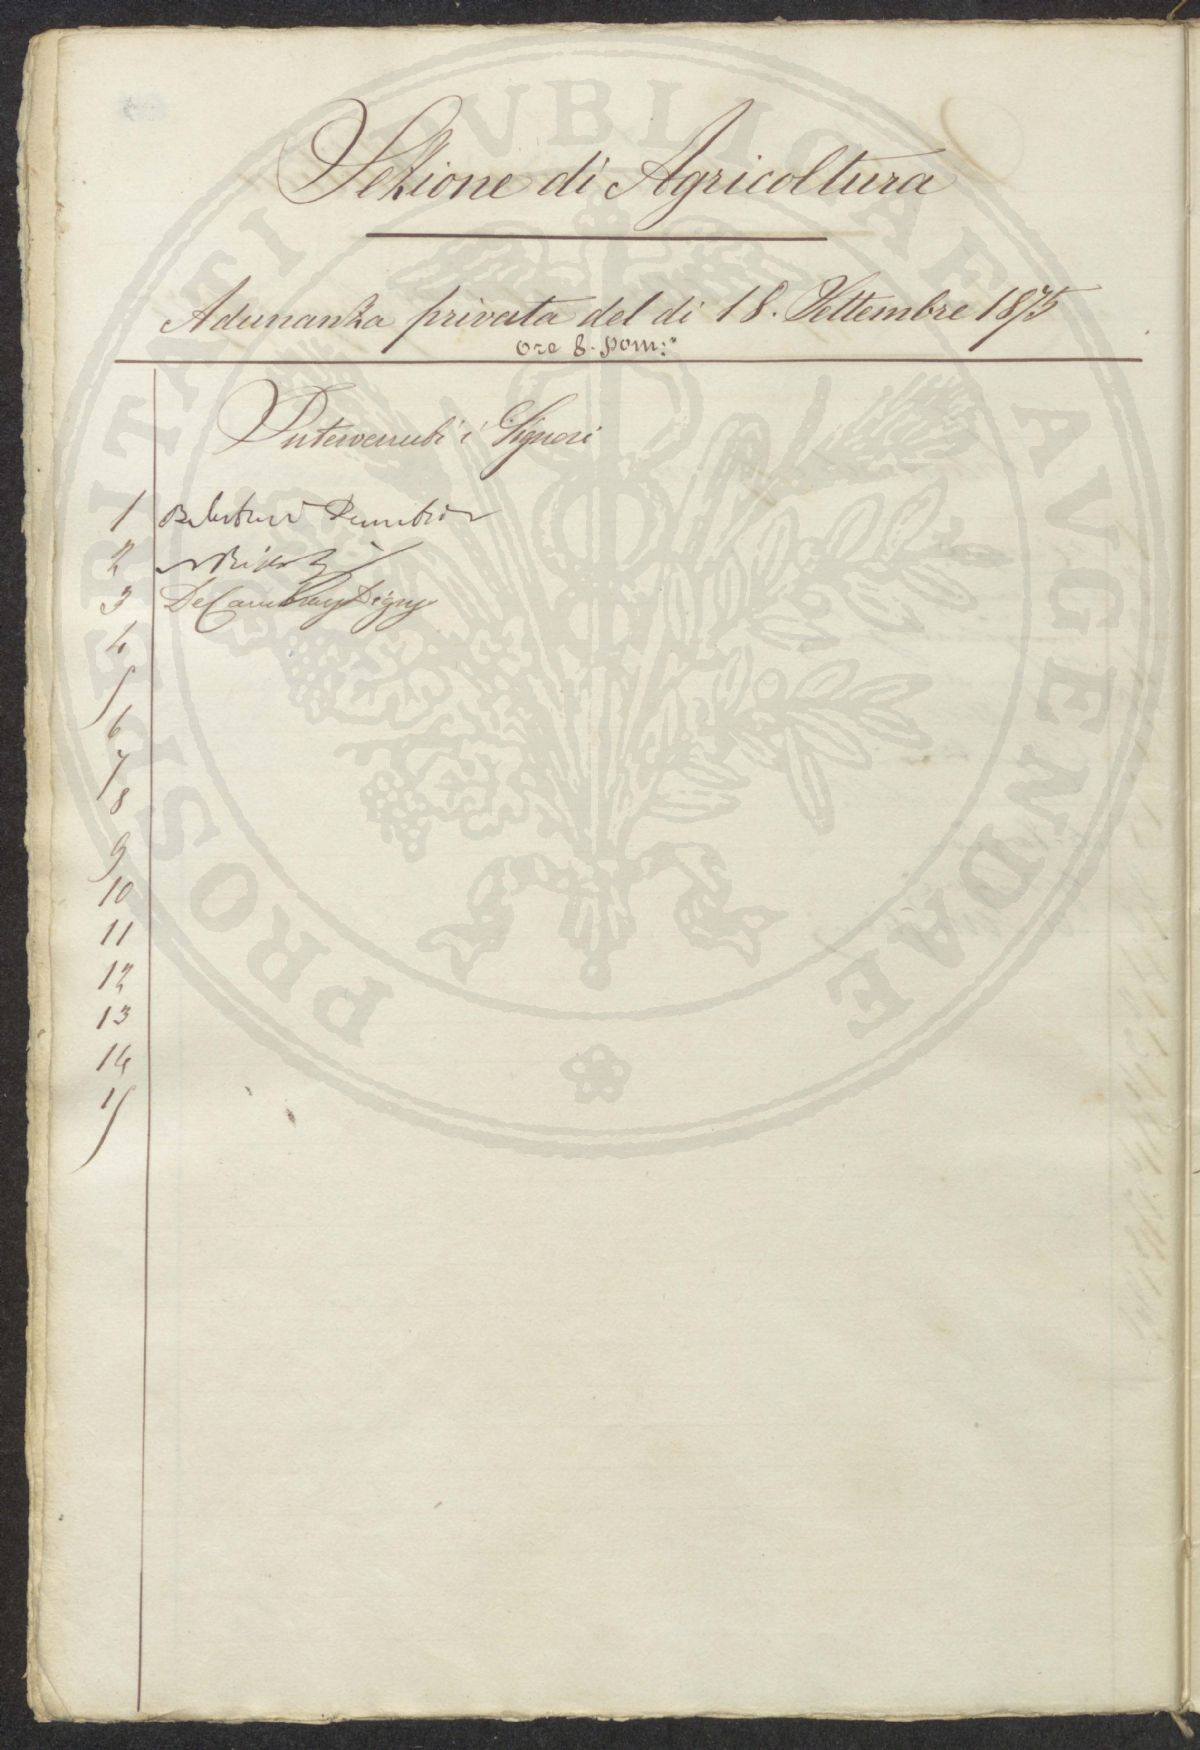 Sezione di Agricoltura
Adunanza privata del dì 18. Settembre 1875
ore 8. pom:
Intervenuti i Signori
1
2
3 De Cambray Digny
4
5
6
7
8
9
10
11
12
13
14
15
PROSPERITATI PVBLICAE AVGENDAE